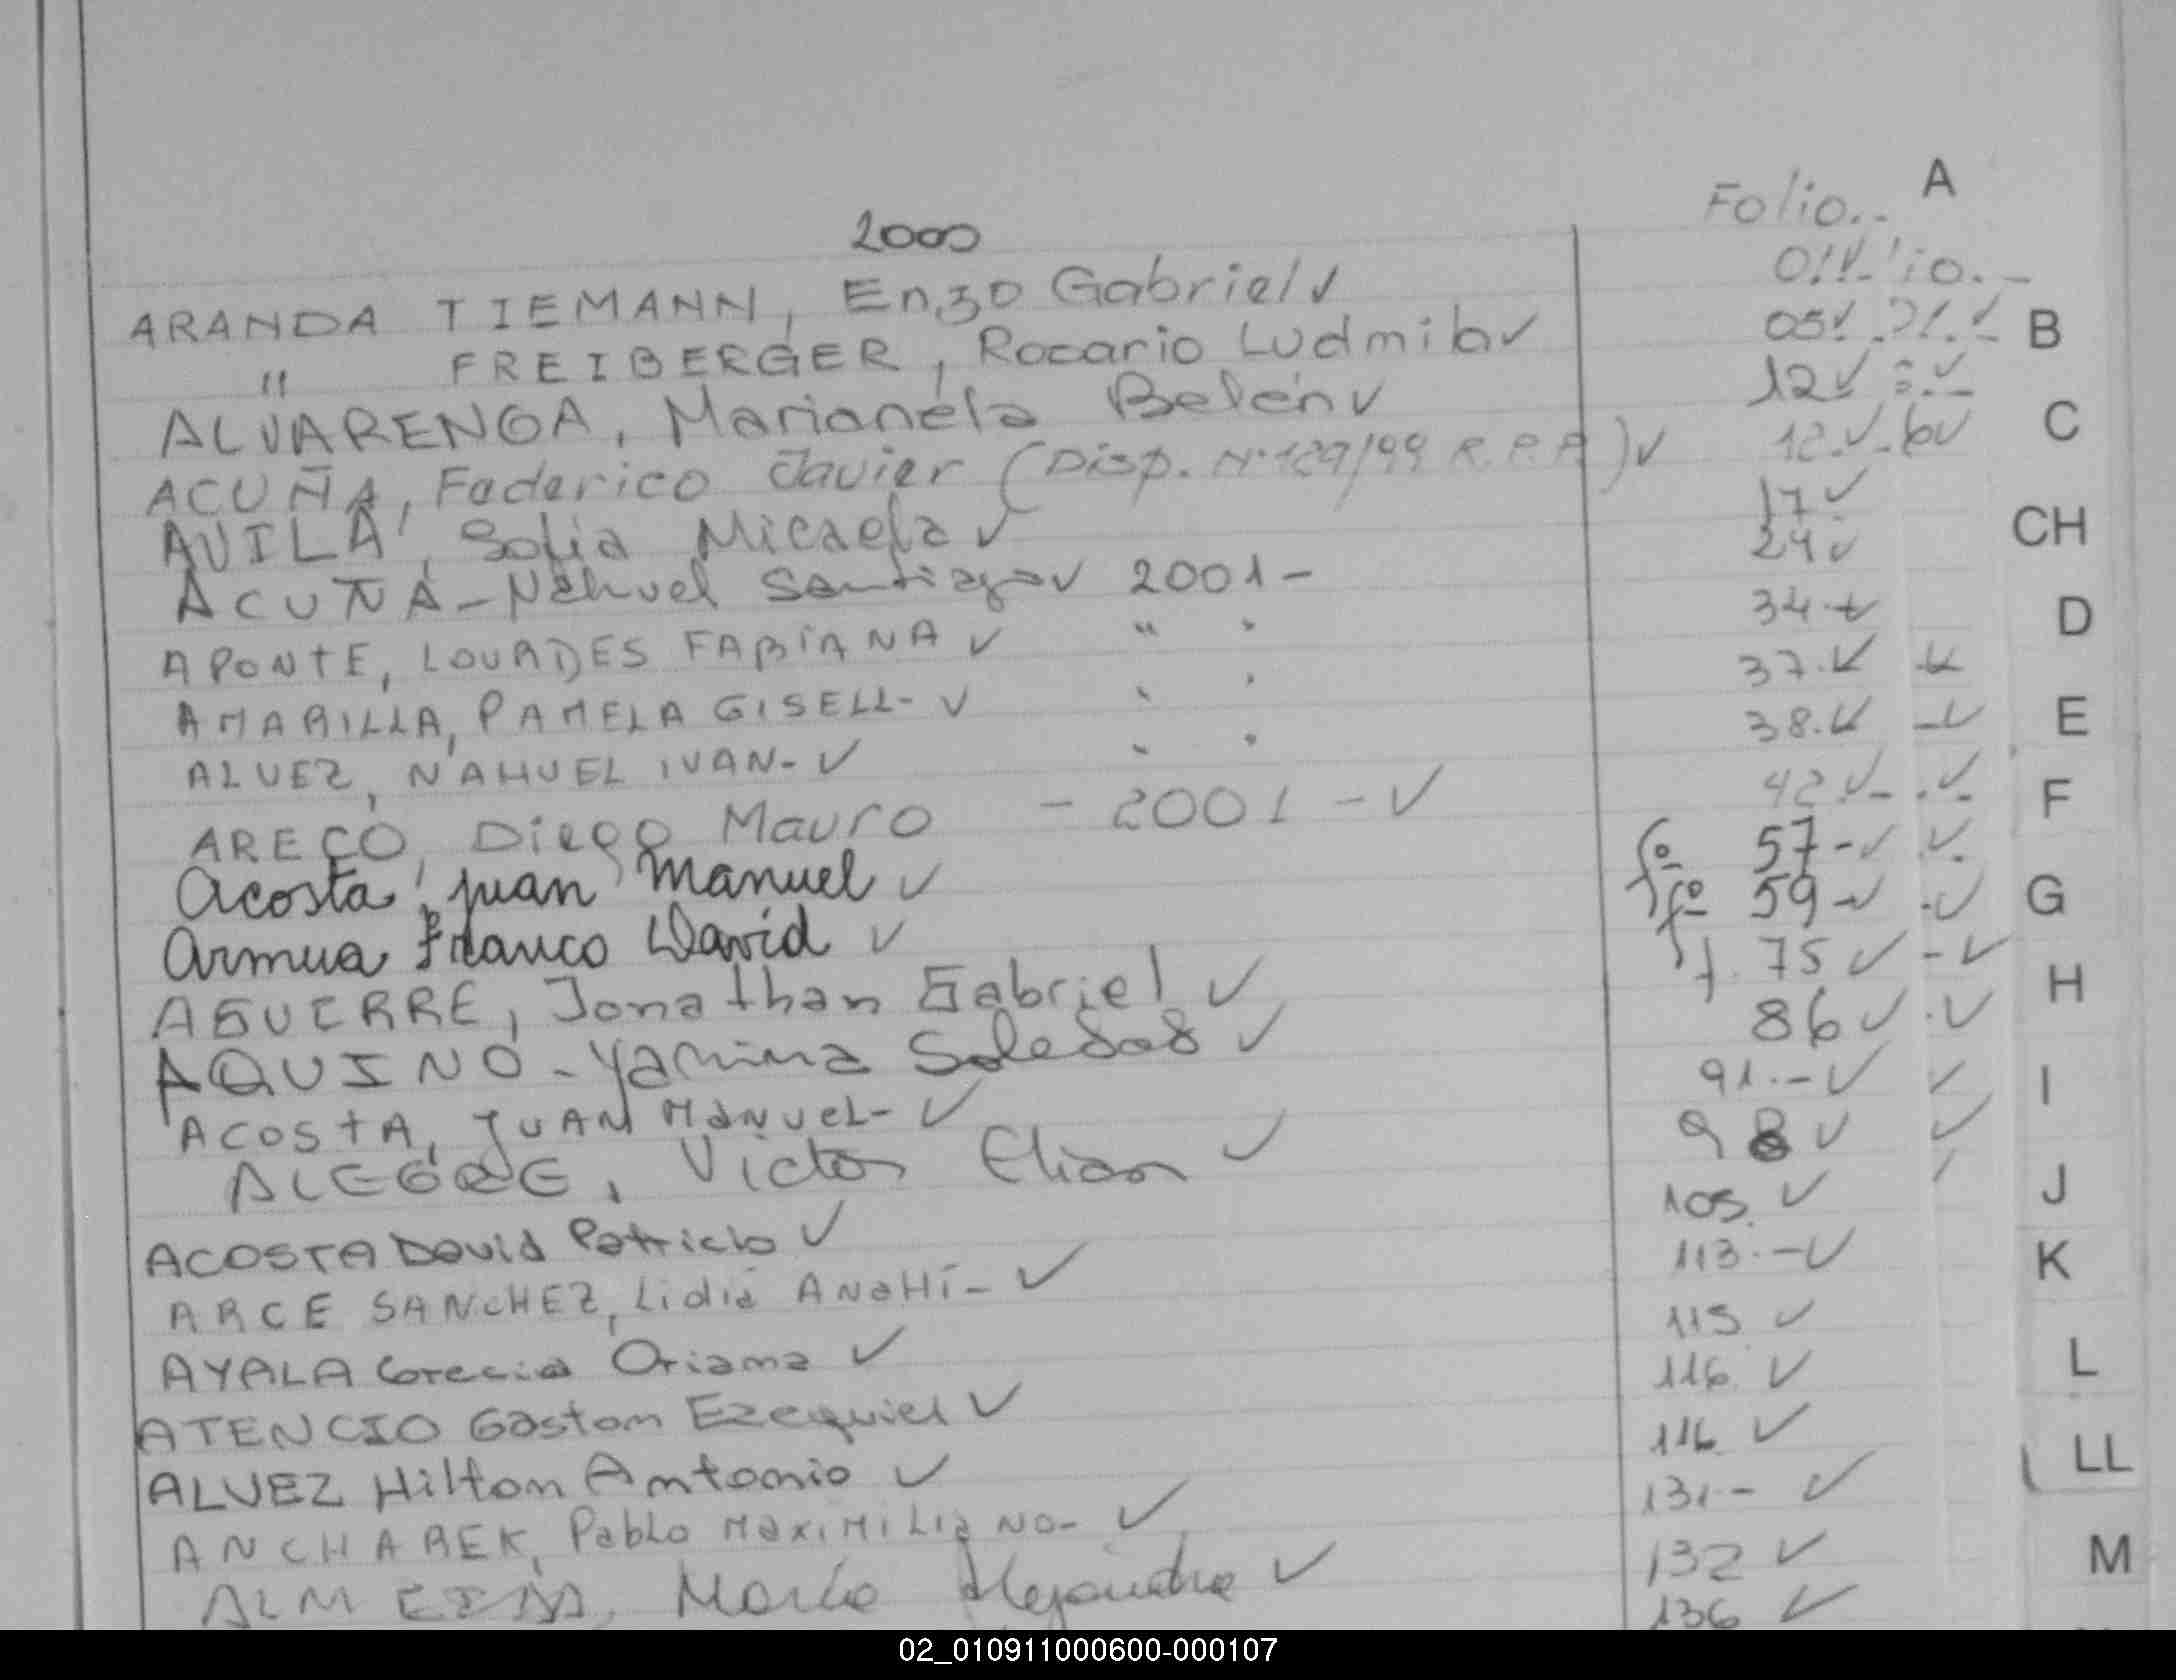 Folio.. A
2000
ARANDA TIEMANN, Enzo Gabriel ✓
" FREIBERGER, Rocario Ludmila ✓ 05 ✓ B
ALVARENGA, Marianela Belén ✓ 12 ✓
ACUÑA, Federico Javier (Disp. Nº 129/99 R.P.P.) ✓ 12 ✓ C
AVILA, Sofia Micaela ✓ 17 ✓
ACUÑA - Nahuel Santiago ✓ 2001 - 24 ✓ CH
APONTE, LOURDES FABIANA ✓ " " 34 ✓ D
AMARILLA, PAMELA GISELL- ✓ " " 37. ✓
ALVEZ, NAHUEL IVAN- ✓ " " 38. ✓ E
ARECO, Diego Mauro - 2001 - ✓ 42 ✓ F
Acosta, Juan Manuel ✓ fº 57 - ✓
Armua Franco David ✓ fº 59 - ✓ G
AGUERRE, Jonathan Gabriel ✓ f. 75 ✓ - ✓ H
AQUINO - Yamina Soledad ✓ 86 ✓ . ✓
ACOSTA, JUAN MANUEL- ✓ 91.- ✓ I
ALEGRE, Victor Elian ✓ 98 ✓
ACOSTA David Patricio ✓ 105. ✓ J
ARCE SANCHEZ, Lidia ANAHÍ- ✓ 113.- ✓ K
AYALA Grecia Oriana ✓ 115 ✓
ATENCIO Gaston Ezequiel ✓ 116 ✓ L
ALVEZ Hilton Antonio ✓ 116 ✓
ANCHAREK, Pablo MAXIMILIANO- ✓ 131- ✓ LL
ALMEIDA, María Alejandra ✓ 132 ✓ M
136 ✓
02_010911000600-000107